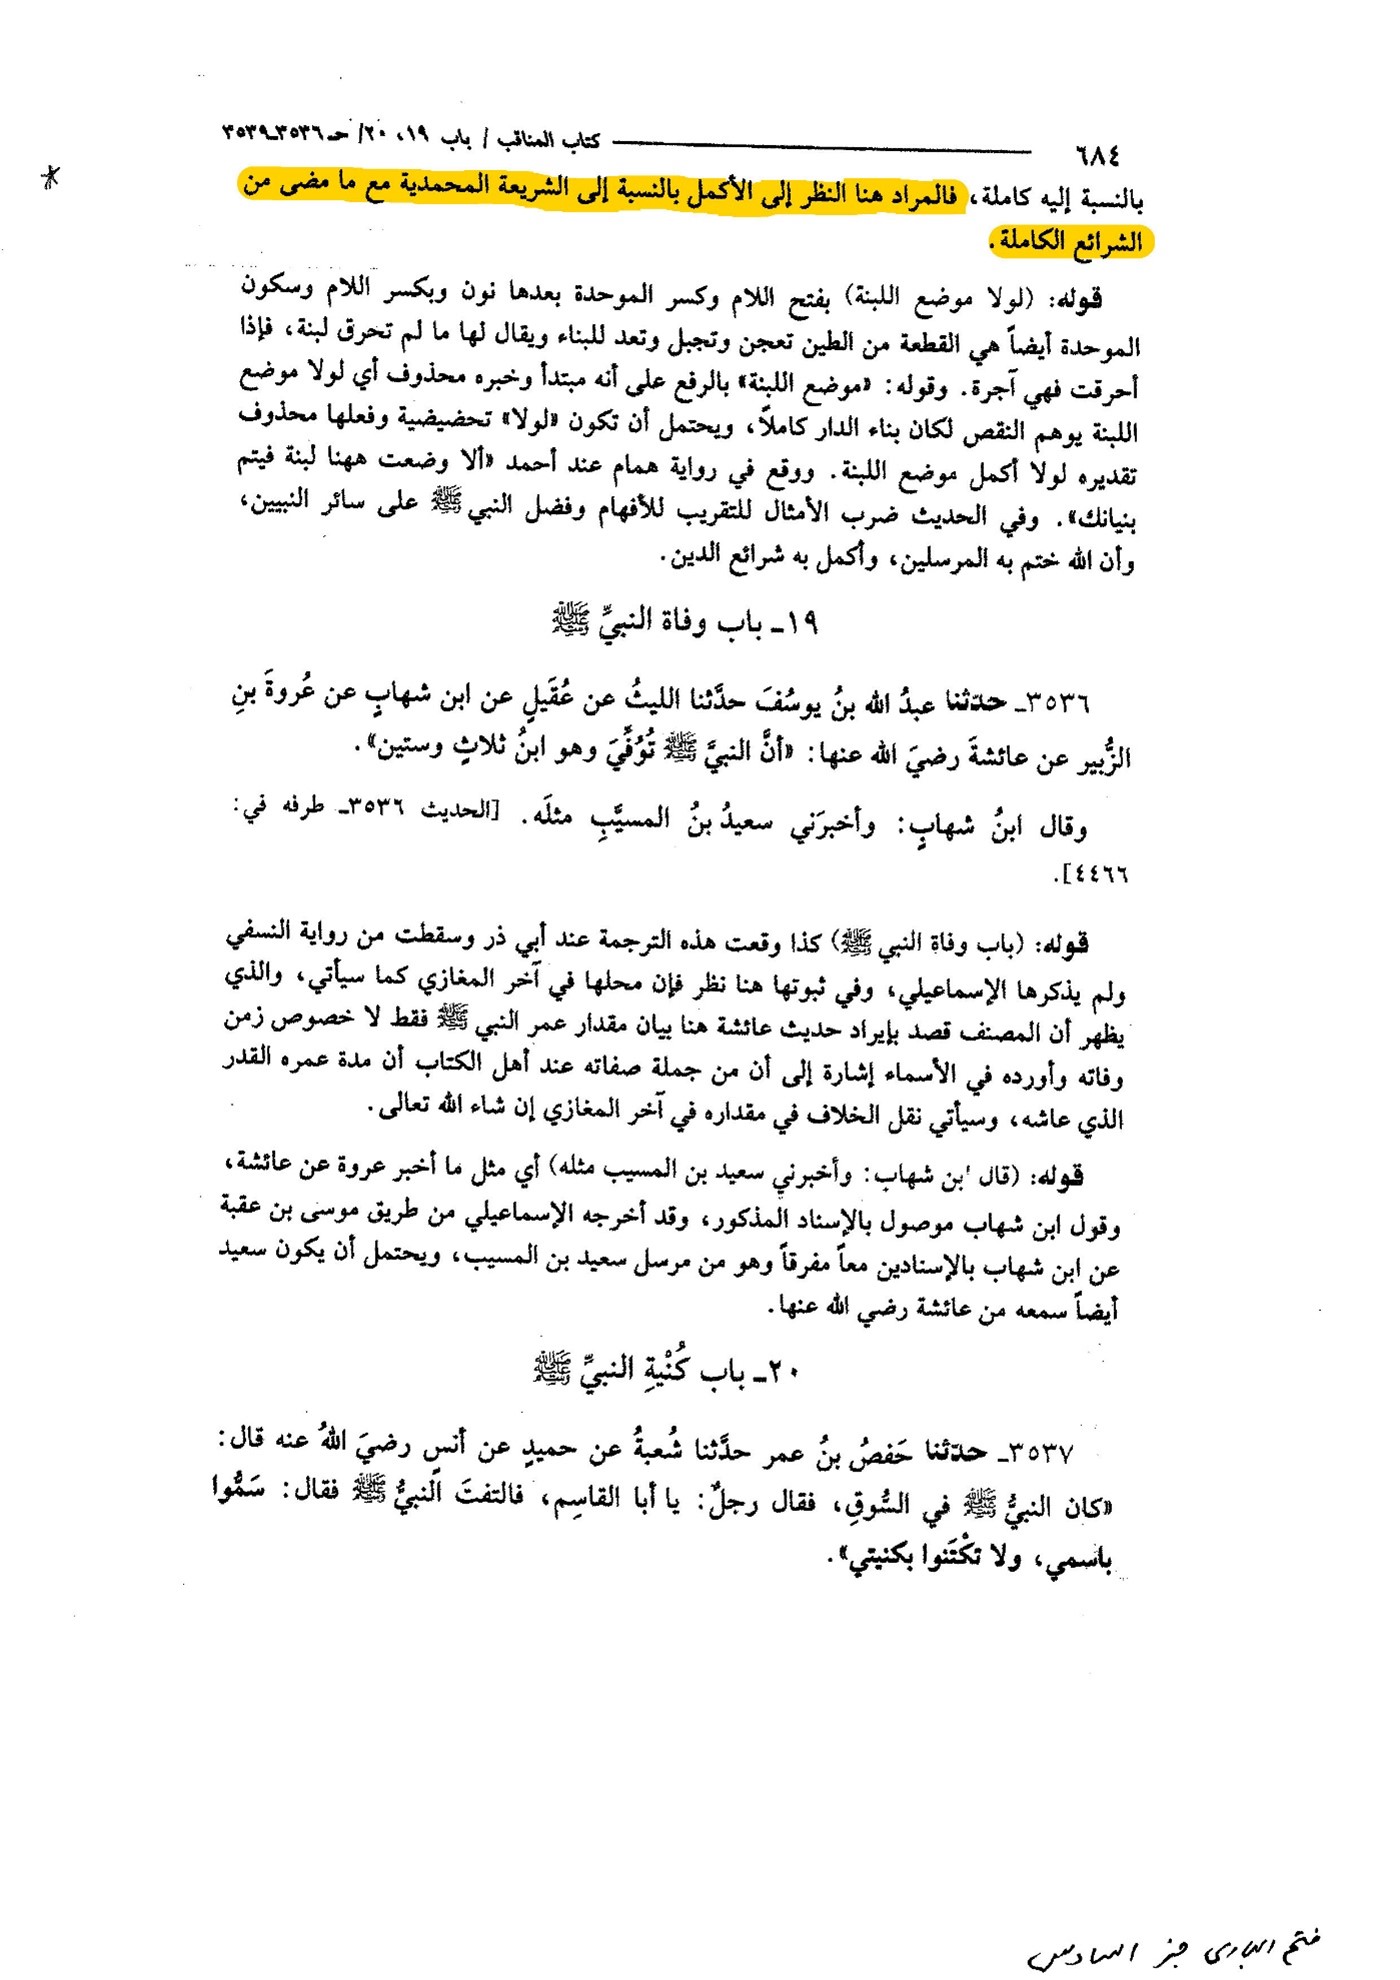 ٦٨٤ كتاب المناقب / باب ١٩، ٢٠/ حـ ٣٥٣٦ـ٣٥٣٩
بالنسبة إليه كاملة، فالمراد هنا النظر إلى الأكمل بالنسبة إلى الشريعة المحمدية مع ما مضى من
الشرائع الكاملة.
قوله: (لولا موضع اللبنة) بفتح اللام وكسر الموحدة بعدها نون وبكسر اللام وسكون
الموحدة أيضاً هي القطعة من الطين تعجن وتجبل وتعد للبناء ويقال لها ما لم تحرق لبنة، فإذا
أحرقت فهي آجرة. وقوله: «موضع اللبنة» بالرفع على أنه مبتدأ وخبره محذوف أي لولا موضع
اللبنة يوهم النقص لكان بناء الدار كاملاً، ويحتمل أن تكون «لولا» تحضيضية وفعلها محذوف
تقديره لولا أكمل موضع اللبنة. ووقع في رواية همام عند أحمد «ألا وضعت ههنا لبنة فيتم
بنيانك». وفي الحديث ضرب الأمثال للتقريب للأفهام وفضل النبي ﷺ على سائر النبيين،
وأن الله ختم به المرسلين، وأكمل به شرائع الدين.
١٩ـ باب وفاة النبيِّ ﷺ
٣٥٣٦ـ حدثنا عبدُ الله بنُ يوسُفَ حدَّثنا الليثُ عن عُقَيلٍ عن ابن شهابٍ عن عُروةَ بنِ
الزُّبير عن عائشةَ رضيَ الله عنها: «أنَّ النبيَّ ﷺ تُوُفِّيَ وهو ابنُ ثلاثٍ وستين».
وقال ابنُ شهابٍ: وأخبرَني سعيدُ بنُ المسيَّبِ مثلَه. [الحديث ٣٥٣٦ـ طرفه في:
٤٤٦٦].
قوله: (باب وفاة النبي ﷺ) كذا وقعت هذه الترجمة عند أبي ذر وسقطت من رواية النسفي
ولم يذكرها الإسماعيلي، وفي ثبوتها هنا نظر فإن محلها في آخر المغازي كما سيأتي، والذي
يظهر أن المصنف قصد بإيراد حديث عائشة هنا بيان مقدار عمر النبي ﷺ فقط لا خصوص زمن
وفاته وأورده في الأسماء إشارة إلى أن من جملة صفاته عند أهل الكتاب أن مدة عمره القدر
الذي عاشه، وسيأتي نقل الخلاف في مقداره في آخر المغازي إن شاء الله تعالى.
قوله: (قال ابن شهاب: وأخبرني سعيد بن المسيب مثله) أي مثل ما أخبر عروة عن عائشة،
وقول ابن شهاب موصول بالإسناد المذكور، وقد أخرجه الإسماعيلي من طريق موسى بن عقبة
عن ابن شهاب بالإسنادين معاً مفرقاً وهو من مرسل سعيد بن المسيب، ويحتمل أن يكون سعيد
أيضاً سمعه من عائشة رضي الله عنها.
٢٠ـ باب كُنْيةِ النبيِّ ﷺ
٣٥٣٧ـ حدثنا حَفصُ بنُ عمر حدَّثنا شُعبةُ عن حميدٍ عن أنسٍ رضيَ اللهُ عنه قال:
«كان النبيُّ ﷺ في السُّوقِ، فقال رجلٌ: يا أبا القاسِم، فالتفتَ النبيُّ ﷺ فقال: سَمُّوا
باسمي، ولا تكْتَنوا بكنيتي».
فتح البارى جز السادس